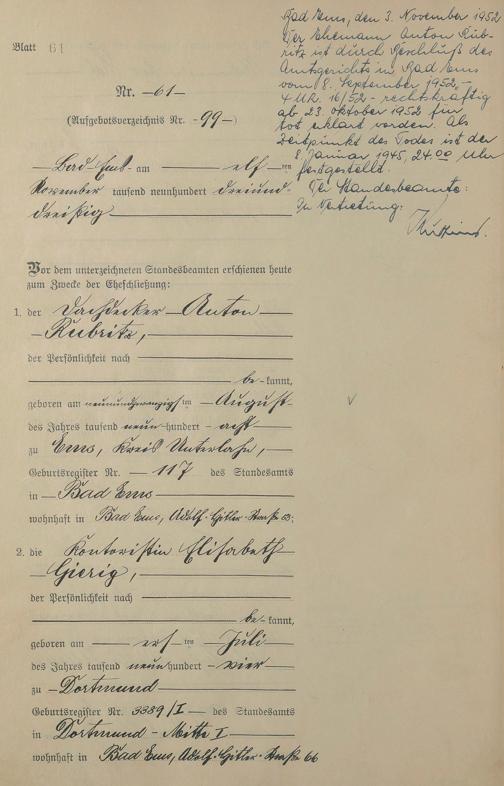 Blatt 61
Bad Ems, den 3. November 1952
Der Ehemann Anton Rub-
ritz ist durch Beschluß des
Amtsgerichts in Bad Ems
vom 8. September 1952, -
4 UR. 16/52 - rechtskräftig
ab 23. Oktober 1952 für
tot erklärt worden. Als
Zeitpunkt des Todes ist der
8. Januar 1945, 24.00 Uhr
festgestellt.
Der Standesbeamte:
In Vertretung:
Nr. -61-
(Aufgebotsverzeichnis Nr. -99-)
Bad Ems - am elf ten
November tausend neunhundert dreiund-
dreißig
Vor dem unterzeichneten Standesbeamten erschienen heute
zum Zwecke der Eheschließung:
1. der Dachdecker Anton
Rubritz,
der Persönlichkeit nach
be-kannt,
geboren am neunundzwanzigs ten August
des Jahres tausend neun hundert acht
zu Ems, Kreis Unterlahn,
Geburtsregister Nr. 117 des Standesamts
in Bad Ems
wohnhaft in Bad Ems, Adolf-Hitler-Straße 63;
2. die Kontoristin Elisabeth
Gierig,
der Persönlichkeit nach
be-kannt,
geboren am ers ten Juli
des Jahres tausend neun hundert vier
zu Dortmund
Geburtsregister Nr. 3389/I des Standesamts
in Dortmund - Mitte I
wohnhaft in Bad Ems, Adolf-Hitler-Straße 66